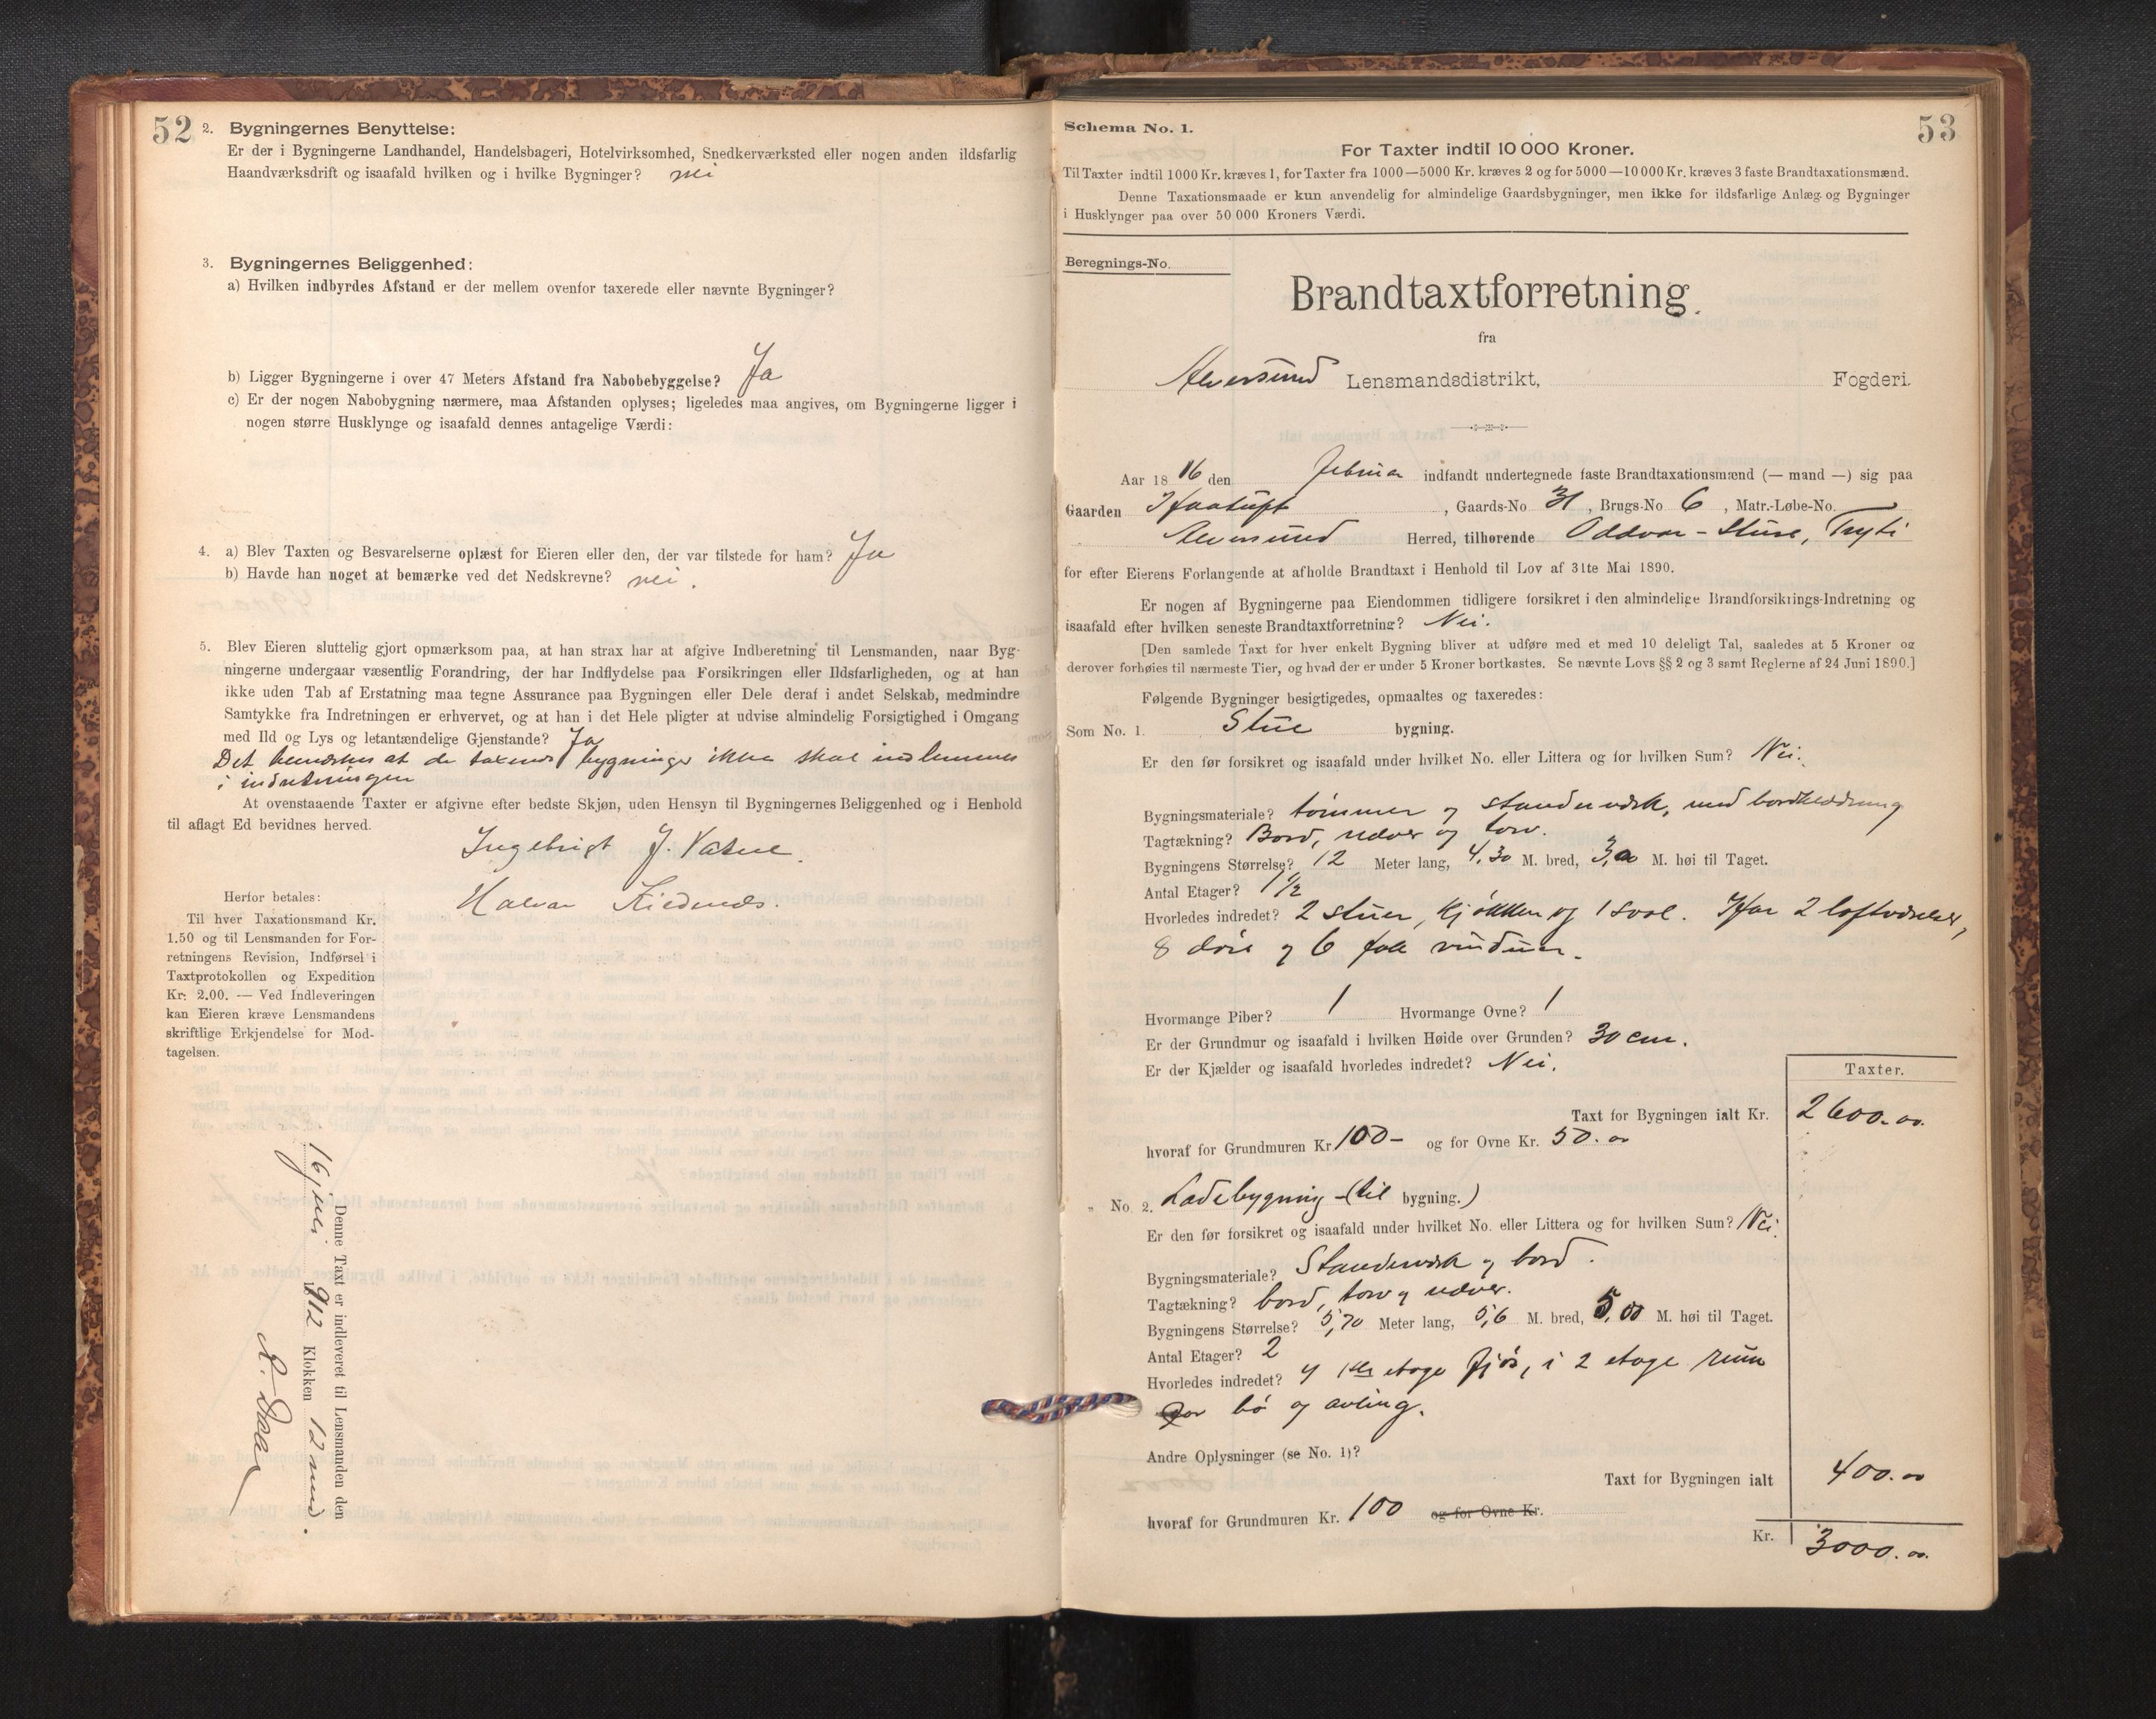 52
2. Bygningernes Benyttelse:
Er der i Bygningerne Landhandel, Handelsbageri, Hotelvirksomhed, Snedkerværksted eller nogen anden ildsfarlig
Haandværksdrift og isaafald hvilken og i hvilke Bygninger? nei
3. Bygningernes Beliggenhed:
a) Hvilken indbyrdes Afstand er der mellem ovenfor taxerede eller nævnte Bygninger?
b) Ligger Bygningerne i over 47 Meters Afstand fra Nabobebyggelse? Ja
c) Er der nogen Nabobygning nærmere, maa Afstanden oplyses; ligeledes maa angives, om Bygningerne ligger i
nogen større Husklynge og isaafald dennes antagelige Værdi:
4. a) Blev Taxten og Besvarelserne oplæst for Eieren eller den, der var tilstede for ham? Ja
b) Havde han noget at bemærke ved det Nedskrevne? nei.
5. Blev Eieren sluttelig gjort opmærksom paa, at han strax har at afgive Indberetning til Lensmanden, naar Byg-
ningerne undergaar væsentlig Forandring, der har Indflydelse paa Forsikringen eller Ildsfarligheden, og at han
ikke uden Tab af Erstatning maa tegne Assurance paa Bygningen eller Dele deraf i andet Selskab, medmindre
Samtykke fra Indretningen er erhvervet, og at han i det Hele pligter at udvise almindelig Forsigtighed i Omgang
med Ild og Lys og letantændelige Gjenstande? Ja
Det bemerkes at de taxerede bygninger ikke skal indlemmes
i indretningen
At ovenstaaende Taxter er afgivne efter bedste Skjøn, uden Hensyn til Bygningernes Beliggenhed og i Henhold
til aflagt Ed bevidnes herved.
Ingebrigt J.
Halvor
Herfor betales:
Til hver Taxationsmand Kr.
1.50 og til Lensmanden for For-
retningens Revision, Indførsel i
Taxtprotokollen og Expedition
Kr. 2.00. — Ved Indleveringen
kan Eieren kræve Lensmandens
skriftlige Erkjendelse for Mod-
tagelsen.
Denne Taxt er indleveret til Lensmanden den
16 juli 1912 Klokken 12 mid.
53
Schema No. 1.
For Taxter indtil 10 000 Kroner.
Til Taxter indtil 1000 Kr. kræves 1, for Taxter fra 1000—5000 Kr. kræves 2 og for 5000—10 000 Kr. kræves 3 faste Brandtaxationsmænd.
Denne Taxationsmaade er kun anvendelig for almindelige Gaardsbygninger, men ikke for ildsfarlige Anlæg og Bygninger
i Husklynger paa over 50 000 Kroners Værdi.
Beregnings-No.
Brandtaxtforretning
fra
Alversund Lensmandsdistrikt, Fogderi.
Aar 18 16 den februar indfandt undertegnede faste Brandtaxationsmænd (— mand —) sig paa
Gaarden Haatuft, Gaards-No 31, Brugs-No 6, Matr.-Løbe-No.
Alversund Herred, tilhørende Oddvar - Stuse, Tryti
for efter Eierens Forlangende at afholde Brandtaxt i Henhold til Lov af 31te Mai 1890.
Er nogen af Bygningerne paa Eiendommen tidligere forsikret i den almindelige Brandforsikrings-Indretning og
isaafald efter hvilken seneste Brandtaxtforretning? Nei.
[Den samlede Taxt for hver enkelt Bygning bliver at udføre med et med 10 deleligt Tal, saaledes at 5 Kroner og
derover forhøies til nærmeste Tier, og hvad der er under 5 Kroner bortkastes. Se nævnte Lovs §§ 2 og 3 samt Reglerne af 24 Juni 1890.]
Følgende Bygninger besigtigedes, opmaaltes og taxeredes:
Som No. 1. Stue bygning.
Er den før forsikret og isaafald under hvilket No. eller Littera og for hvilken Sum? Nei.
Bygningsmateriale? tømmer og standerværk, med bordklædning
Tagtækning? Bord, næver og torv.
Bygningens Størrelse? 12 Meter lang, 4,30 M. bred, 3,00 M. høi til Taget.
Antal Etager? 1 1/2
Hvorledes indredet? 2 stuer, kjøkken og 1 sval. Har 2 loftværelser,
8 døre og 6 fag vinduer.
Hvormange Piber? 1 Hvormange Ovne? 1
Er der Grundmur og isaafald i hvilken Høide over Grunden? 30 cm.
Er der Kjælder og isaafald hvorledes indredet? Nei.
Taxter.
Taxt for Bygningen ialt Kr. 2600.00
hvoraf for Grundmuren Kr 100 - og for Ovne Kr. 50.00
" No. 2. Ladebygning (til bygning.)
Er den før forsikret og isaafald under hvilket No. eller Littera og for hvilken Sum? Nei.
Bygningsmateriale? Standerværk og bord.
Tagtækning? bord, torv og næver.
Bygningens Størrelse? 5,70 Meter lang, 5,6 M. bred, 5,00 M. høi til Taget.
Antal Etager? 2
Hvorledes indredet? I 1ste etage fjøs, i 2 etage rum
for hø og avling.
Andre Oplysninger (se No. 1)?
Taxt for Bygningen ialt 400.00
hvoraf for Grundmuren Kr. 100 og for Ovne Kr.
Kr. 3000.00